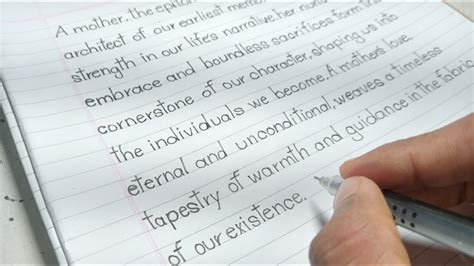 A mother, the epitome
architect of our earliest memo
strength in our life's narrative her nur
embrace and boundless sacrifices form the
cornerstone of our character, shaping us into
the individuals we become. A mother's love,
eternal and unconditional, weaves a timeless
tapestry of warmth and guidance in the fabric
of our existence.